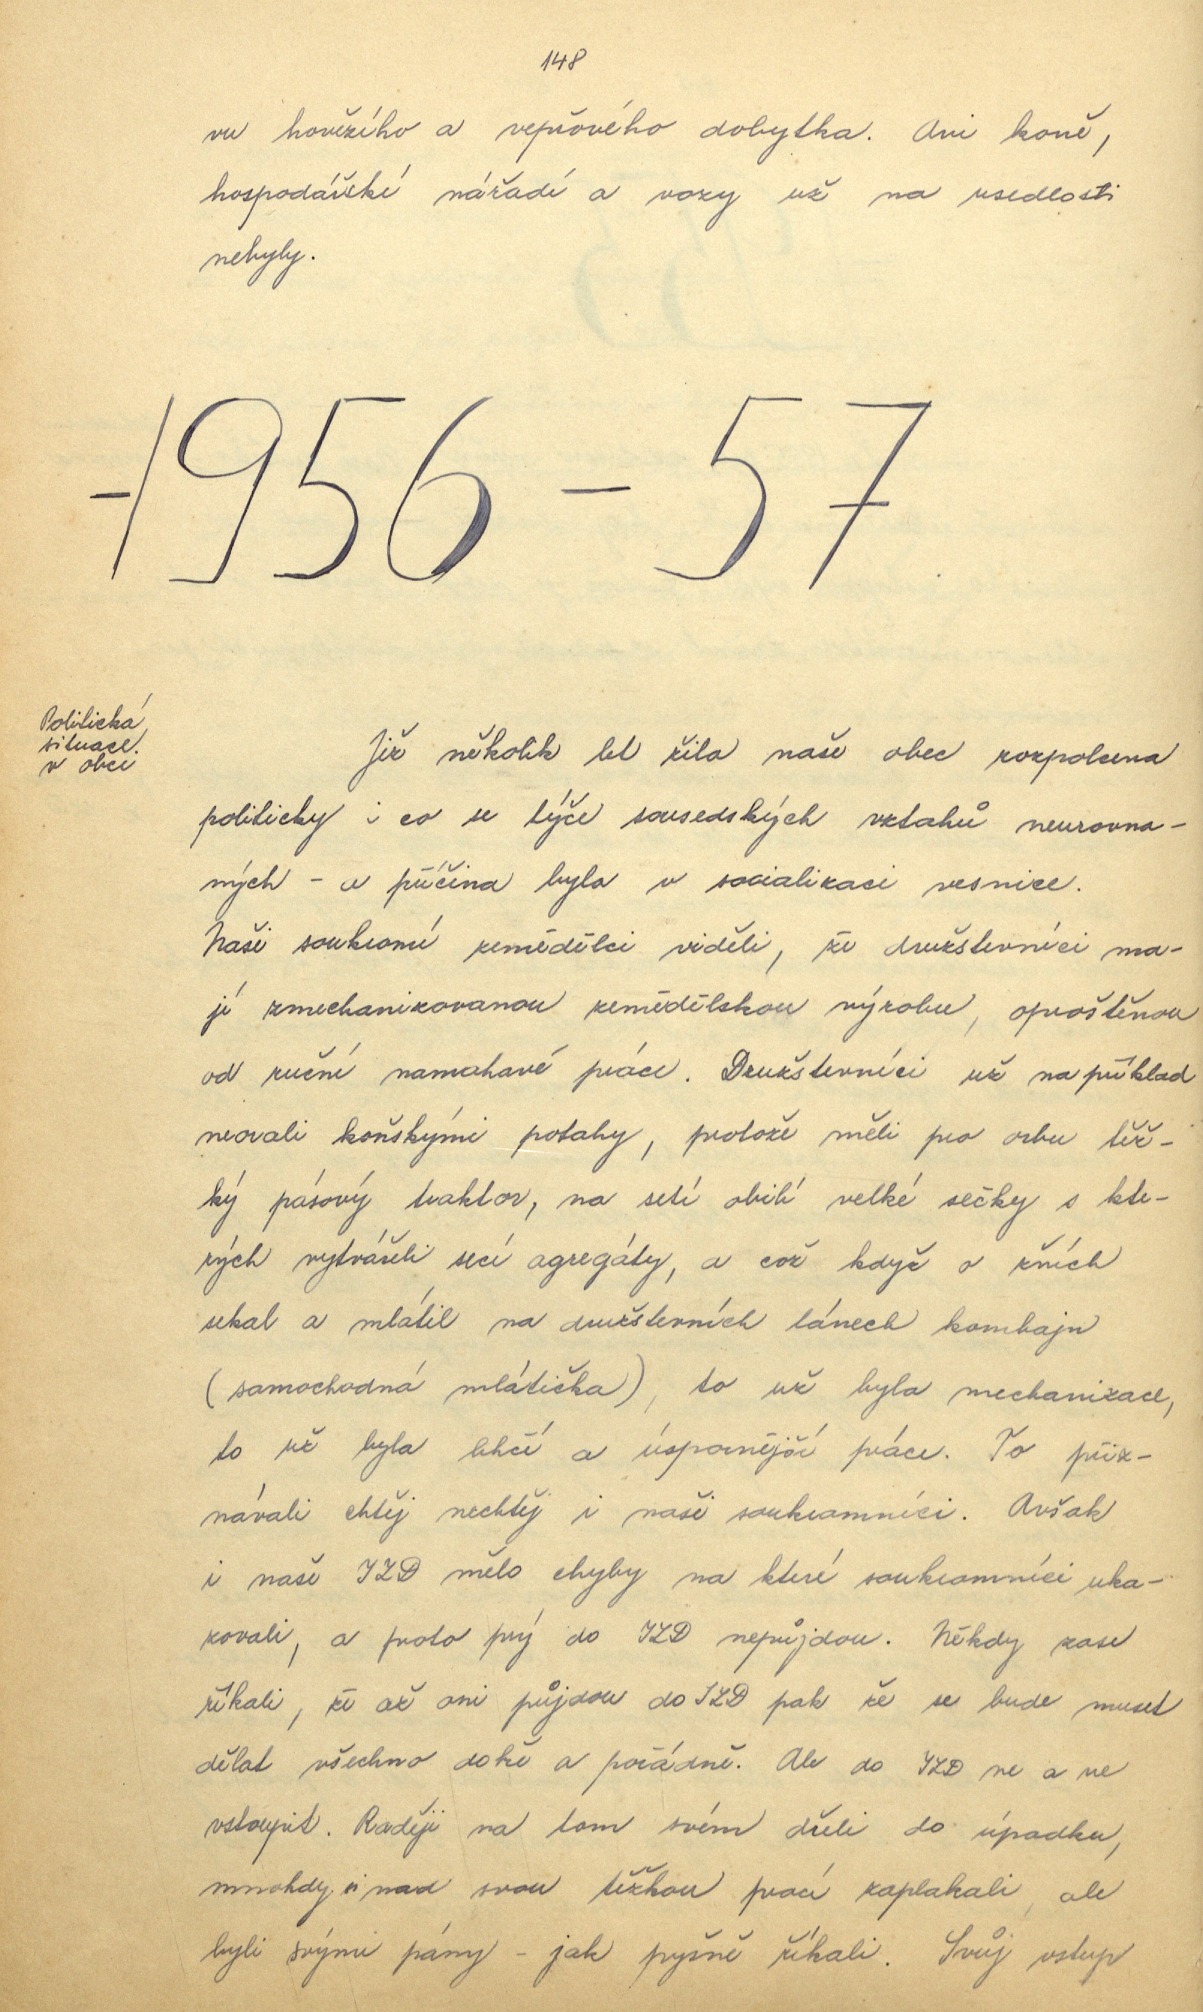 148
vu hovězího a vepřového dobytka. Ani koně,
hospodářské nářadí a vozy už na usedlosti
nebyly.
1956 - 57
Politická
situace
v obci
Již několik let žila naše obec rozpolcena
politicky i co se týče sousedských vztahů neurovna-
ných - a příčina byla v socializaci vesnice.
Naši soukromí zemědělci viděli, že družstevníci ma-
jí zmechanizovanou zemědělskou výrobu, oproštěnou
od ruční namahavé práce. Družstevníci už na příklad
neorali koňskými potahy, protože měli pro orbu těž-
ký pásový traktor, na setí obilí velké sečky s kte-
rých vytvářeli secí agregáty, a což když o žních
sekal a mlátil na družstevních lánech kombajn
(samochodná mlátička), to už byla mechanizace,
to už byla lehčí a úspornější práce. To přiz-
návali chtěj nechtěj i naši soukromníci. Avšak
i naše JZD mělo chyby na které soukromníci uka-
zovali, a proto prý do JZD nepůjdou. Někdy zase
říkali, že až oni půjdou do JZD pak že se bude muset
dělat všechno dobře a pořádně. Ale do JZD ne a ne
vstoupit. Raději na tom svém dřeli do úpadku,
mnohdy si nad svou těžkou prací zaplakali, ale
byli svými pány - jak pyšně říkali. Svůj vstup